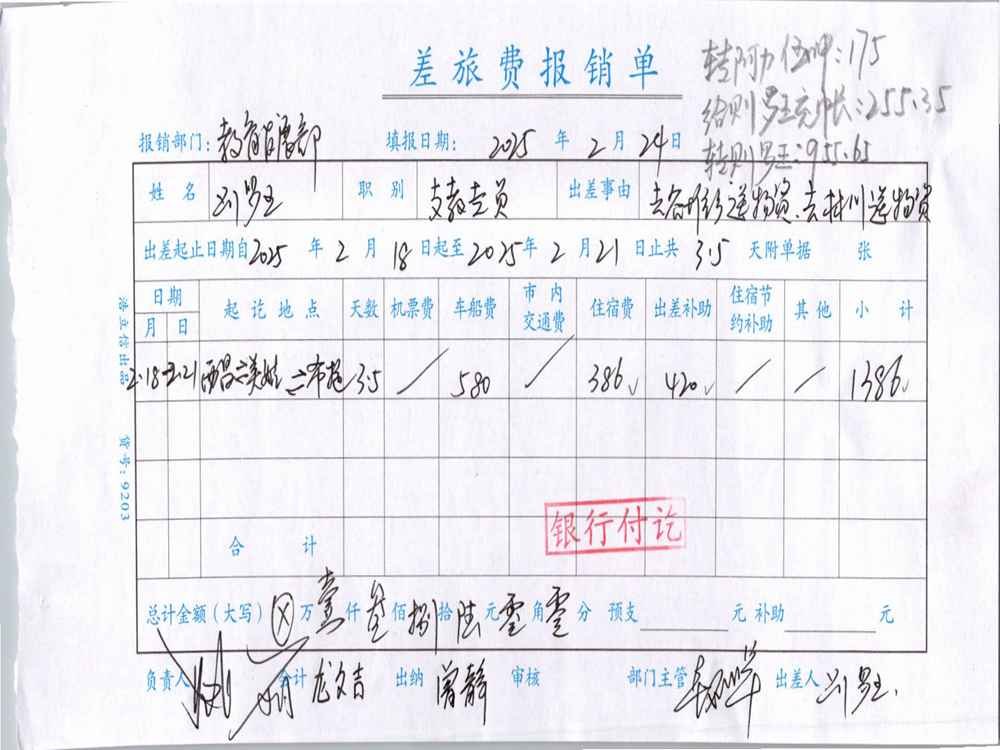 差旅费报销单
转阿力伍呷:175
给则罗王充中长:255.35
转则罗王:955.65
报销部门: 教育部 填报日期: 2025 年 2 月 24 日
姓名 则罗王 职别 支教专员 出差事由 送物资、去林川送物资
出差起止日期自 2025 年 2 月 18 日起至 2025 年 2 月 21 日止共 3.5 天附单据 张
日期 起讫地点 天数 机票费 车船费 市内交通费 住宿费 出差补助 住宿节约补助 其他 小计
月 日
2.18-2.21 西昌-美姑-布拖 3.5 / 580 / 386 420 / / 1386
合计
银行付讫
总计金额(大写) ⊗ 万 壹 仟 叁 佰 捌 拾 陆 元 零 角 零 分 预支 元 补助 元
负责人 会计 龙文吉 出纳 曾静 审核 部门主管 出差人 则罗王
浩立信出品 货号:9203